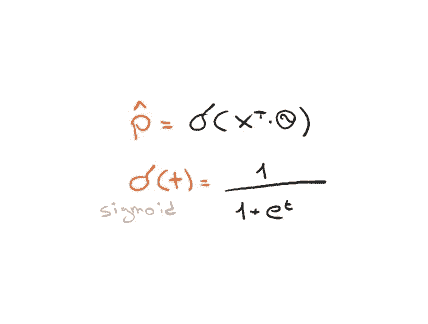 p̂ = σ(x^T · Θ)
σ(t) = 1 / (1 + e^t)
sigmoid